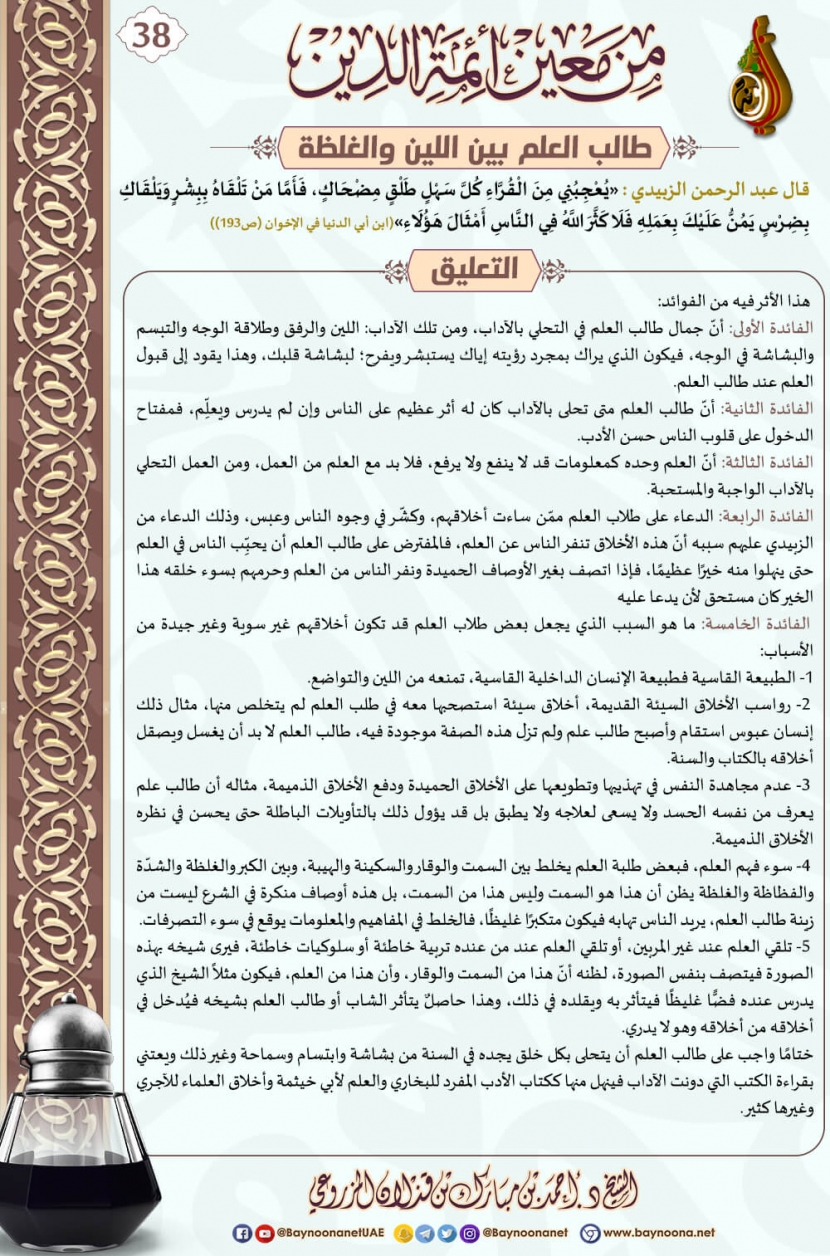 38
من معين أئمة الدين
طالب العلم بين اللين والغلظة
قال عبد الرحمن الزبيدي: «يُعْجِبُنِي مِنَ الْقُرَّاءِ كُلَّ سَهْلٍ طَلْقٍ مِضْحَاكٍ، فَأَمَّا مَنْ تَلْقَاهُ بِبِشْرٍ وَيَلْقَاكَ
بِضِرْسٍ يَمُنُّ عَلَيْكَ بِعَمَلِهِ فَلَا كَثَّرَ اللَّهُ فِي النَّاسِ أَمْثَالَ هَؤُلَاءِ»(ابن أبي الدنيا في الإخوان (ص193))
التعليق
هذا الأثر فيه من الفوائد:
الفائدة الأولى: أنّ جمال طالب العلم في التحلي بالآداب، ومن تلك الآداب: اللين والرفق وطلاقة الوجه والتبسم
والبشاشة في الوجه، فيكون الذي يراك بمجرد رؤيته إياك يستبشر ويفرح؛ لبشاشة قلبك، وهذا يقود إلى قبول
العلم عند طالب العلم.
الفائدة الثانية: أنّ طالب العلم متى تحلى بالآداب كان له أثر عظيم على الناس وإن لم يدرس ويعلّم، فمفتاح
الدخول على قلوب الناس حسن الأدب.
الفائدة الثالثة: أنّ العلم وحده كمعلومات قد لا ينفع ولا يرفع، فلا بد مع العلم من العمل، ومن العمل التحلي
بالآداب الواجبة والمستحبة.
الفائدة الرابعة: الدعاء على طلاب العلم ممّن ساءت أخلاقهم، وكشّر في وجوه الناس وعبس، وذلك الدعاء من
الزبيدي عليهم سببه أنّ هذه الأخلاق تنفر الناس عن العلم، فالمفترض على طالب العلم أن يحبِّب الناس في العلم
حتى ينهلوا منه خيرًا عظيمًا، فإذا اتصف بغير الأوصاف الحميدة ونفر الناس من العلم وحرمهم بسوء خلقه هذا
الخير كان مستحق لأن يدعا عليه
الفائدة الخامسة: ما هو السبب الذي يجعل بعض طلاب العلم قد تكون أخلاقهم غير سوية وغير جيدة من
الأسباب:
1- الطبيعة القاسية فطبيعة الإنسان الداخلية القاسية، تمنعه من اللين والتواضع.
2- رواسب الأخلاق السيئة القديمة، أخلاق سيئة استصحبها معه في طلب العلم لم يتخلص منها، مثال ذلك
إنسان عبوس استقام وأصبح طالب علم ولم تزل هذه الصفة موجودة فيه، طالب العلم لا بد أن يغسل ويصقل
أخلاقه بالكتاب والسنة.
3- عدم مجاهدة النفس في تهذيبها وتطويعها على الأخلاق الحميدة ودفع الأخلاق الذميمة، مثاله أن طالب علم
يعرف من نفسه الحسد ولا يسعى لعلاجه ولا يطبق بل قد يؤول ذلك بالتأويلات الباطلة حتى يحسن في نظره
الأخلاق الذميمة.
4- سوء فهم العلم، فبعض طلبة العلم يخلط بين السمت والوقار والسكينة والهيبة، وبين الكبر والغلظة والشدّة
والفظاظة والغلظة يظن أن هذا هو السمت وليس هذا من السمت، بل هذه أوصاف منكرة في الشرع ليست من
زينة طالب العلم، يريد الناس تهابه فيكون متكبرًا غليظًا، فالخلط في المفاهيم والمعلومات يوقع في سوء التصرفات.
5- تلقي العلم عند غير المربين، أو تلقي العلم عند من عنده تربية خاطئة أو سلوكيات خاطئة، فيرى شيخه بهذه
الصورة فيتصف بنفس الصورة، لظنه أنّ هذا من السمت والوقار، وأن هذا من العلم، فيكون مثلاً الشيخ الذي
يدرس عنده فضًّا غليظًا فيتأثر به ويقلده في ذلك، وهذا حاصلٌ يتأثر الشاب أو طالب العلم بشيخه فيُدخل في
أخلاقه من أخلاقه وهو لا يدري.
ختامًا واجب على طالب العلم أن يتحلى بكل خلق يجده في السنة من بشاشة وابتسام وسماحة وغير ذلك ويعتني
بقراءة الكتب التي دونت الآداب فينهل منها ككتاب الأدب المفرد للبخاري والعلم لأبي خيثمة وأخلاق العلماء للآجري
وغيرها كثير.
الشيخ د. أحمد بن مبارك بن قذلان المزروعي
@BaynoonanetUAE @Baynoonanet www.baynoona.net